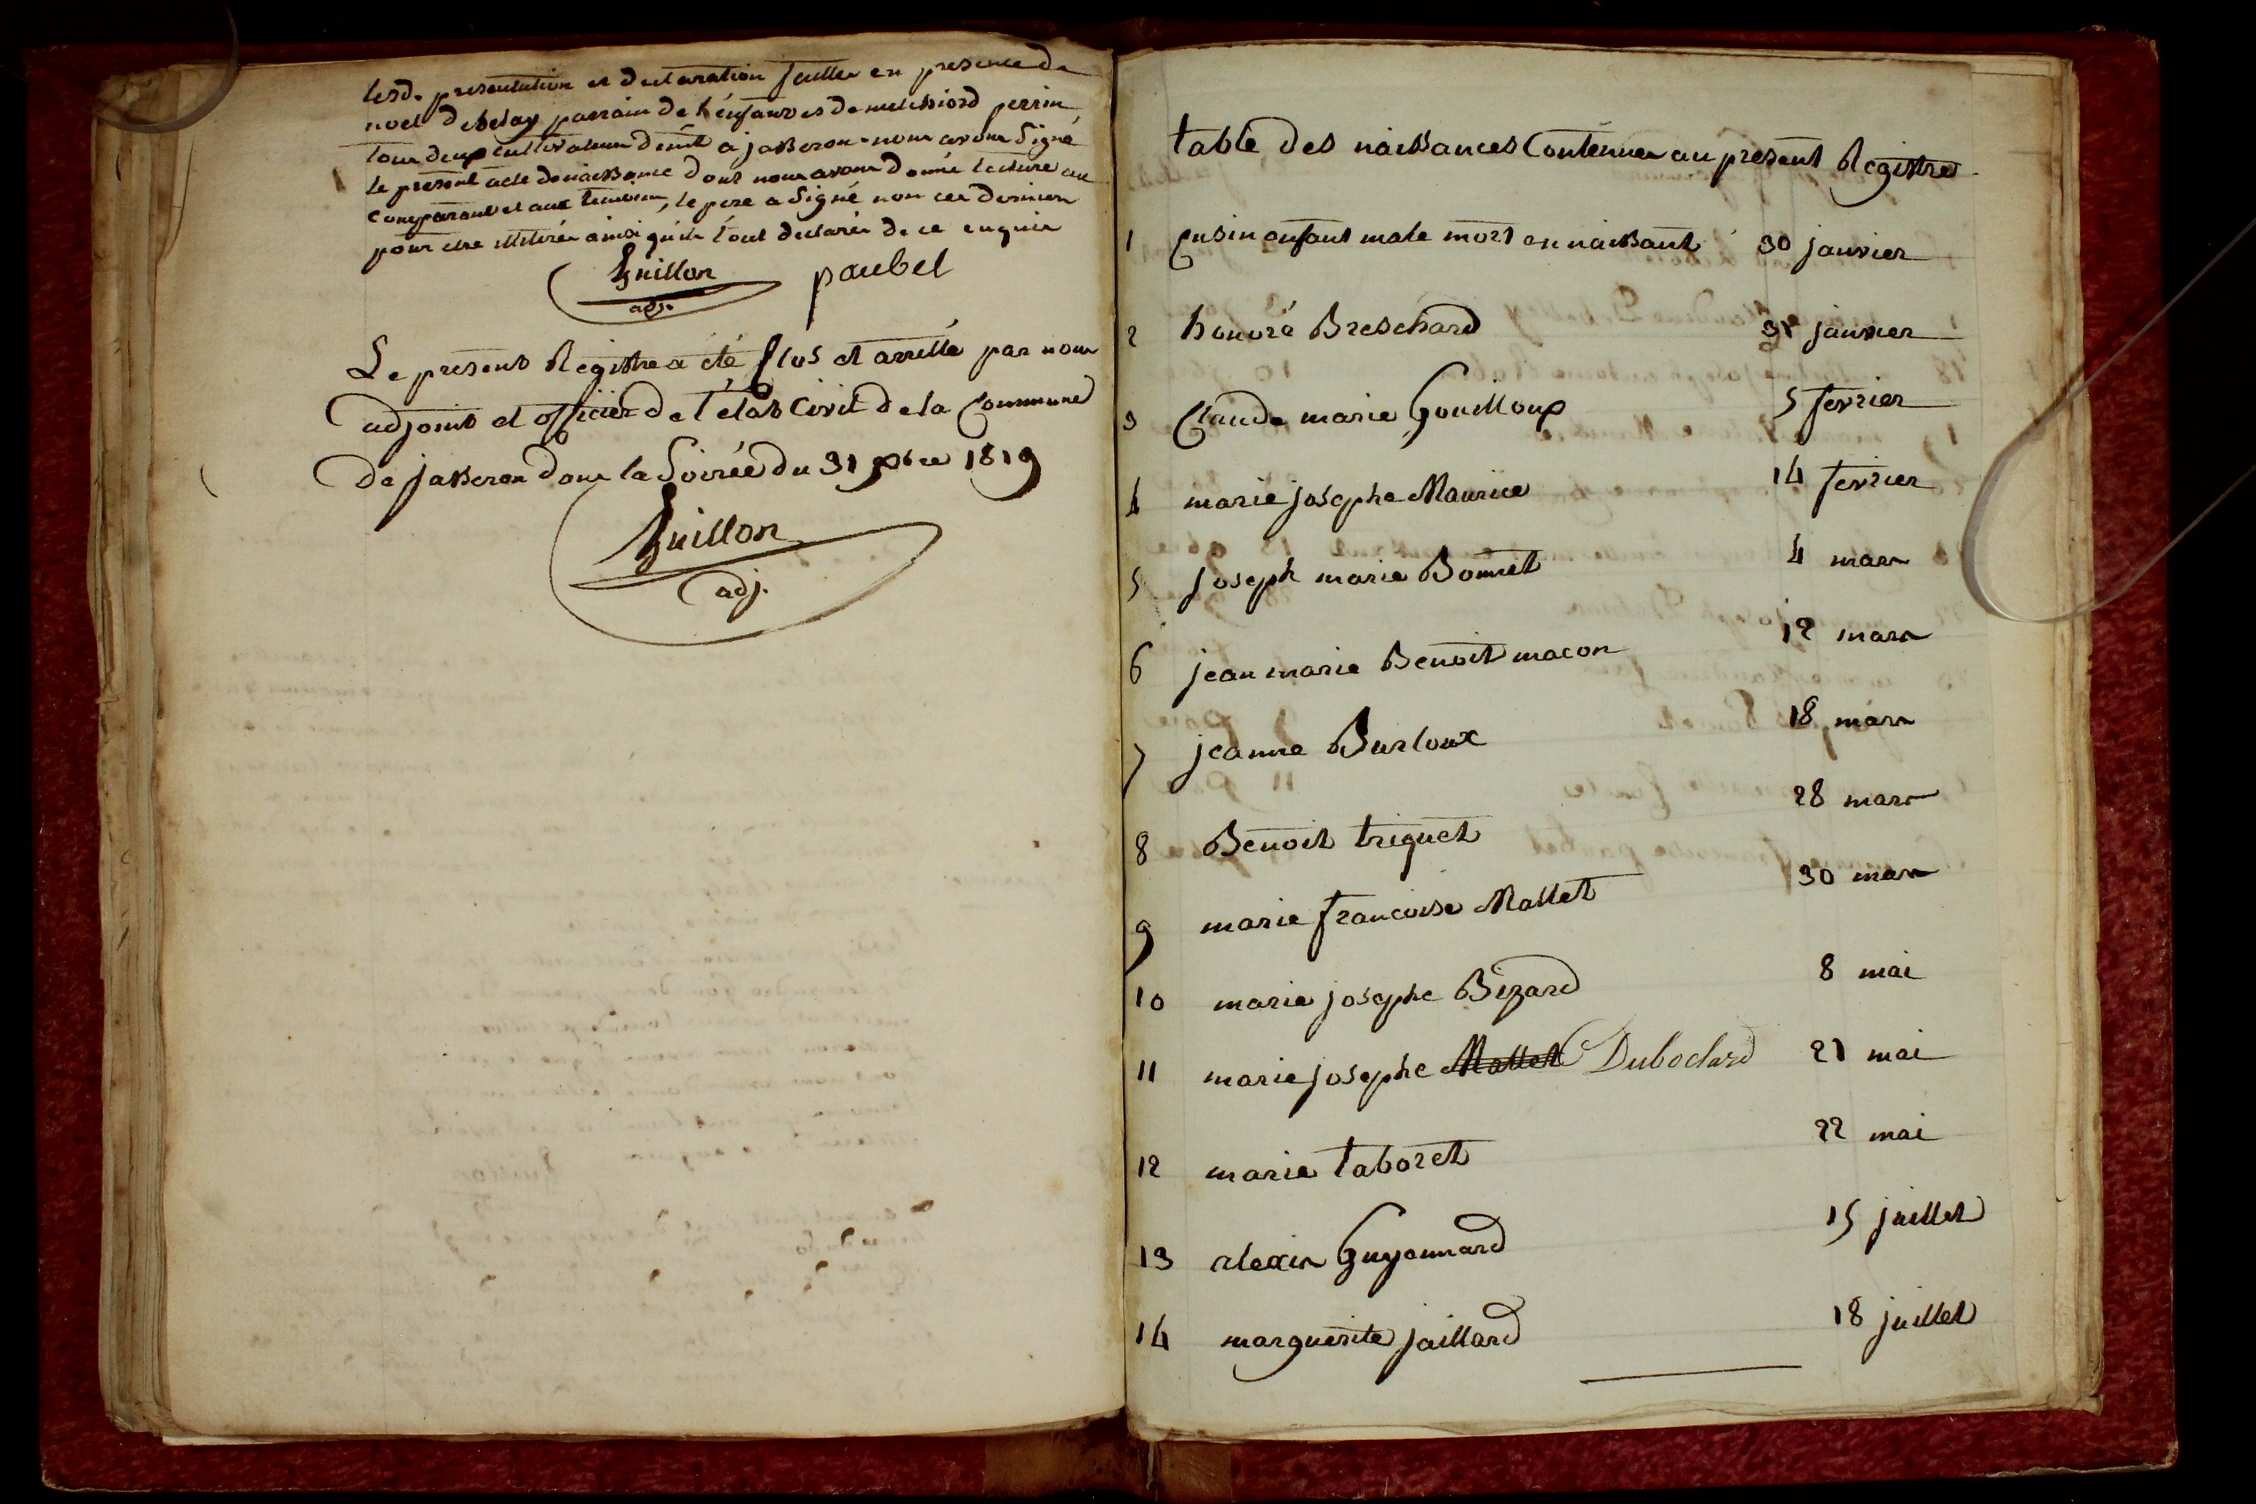 lesd. presentation et declaration faittes en presence de
noel debelay parrain de l'enfant et de melchiord perrin
tous deux cultivateurs dem.t à jasseron. nous avons Signé
le present acte de naissance dont nous avons donné lecture au
comparant et aux temoins, le pere a Signé non ces derniers
pour etre illitérés ainsi qu'ils l'ont declarés de ce enquis
Guillon paubel
adj.
Le present Registre a été Clos et arretté par nous
adjoint et officier de l'état Civil de la Commune
de jasseron dans la Soirée du 31 xbre 1819
Guillon
adj.
table des naissances Contenues au present Registre
1 Cusin enfant male mort en naissant 30 janvier
2 honoré Breschard 31 janvier
3 Claude marie Gouilloux 5 fevrier
4 marie josephe Maurice 14 fevrier
5 joseph marie Bonnet 4 mars
6 jean marie Benoit macon 12 mars
7 jeanne Burloux 18 mars
8 Benoit triquet 28 mars
9 marie francoise Mallet 30 mars
10 marie josephe Bizard 8 mai
11 marie josephe Mallet Duboclard 21 mai
12 marie taboret 22 mai
13 alexis Guyennard 15 juillet
14 marguerite jaillard 18 juillet